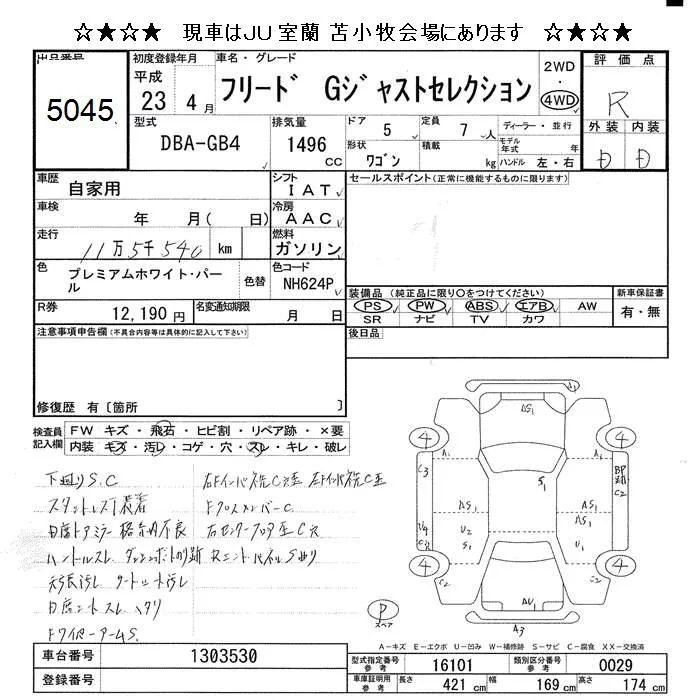 ☆★☆★ 現車はJU室蘭 苫小牧会場にあります ☆★☆★
出品番号
5045
初度登録年月
平成 23 4月
車名・グレード
フリード Gジャストセレクション
2WD
・
4WD
評価点
R
外装 内装
D D
型式
DBA-GB4
排気量
1496 cc
ドア 5
定員 7 人
形状 ワゴン
積載 kg
ディーラー・並行
モデル年式 年
ハンドル 左・右
車歴 自家用
シフト IAT
車検 年 月( 日)
冷房 AAC
走行 11万5千540 km
燃料 ガソリン
色 プレミアムホワイト・パール
色替
色コード NH624P
R券 12,190円
名変通知期限 月 日
セールスポイント(正常に機能するものに限ります)
装備品(純正品に限り〇をつけてください)
新車保証書
有・無
PS PW ABS エアB AW
SR ナビ TV カワ
後日品
注意事項申告欄(不具合内容等は具体的に記入して下さい)
修復歴 有〔箇所 〕
検査員記入欄
FW キズ・飛石・ヒビ割・リペア跡・×要
内装 キズ・汚レ・コゲ・穴・スレ・キレ・破レ
下廻りS.C
スタットレス丁装着
ハンドルスレ
天張汚レ シート汚レ
FワイパーアームS.
FクロスメンバーC
4 4
4 4
A1 A1
AS1
C3
S1
AS1 AS1
U2
S1
U1
C2 C2
AU1
A3
P
スペア
A-キズ E-エクボ U-凹み W-補修跡 S-サビ C-腐食 XX-交換済
車台番号 1303530
登録番号
型式指定番号 16101
類別区分番号 0029
車庫証明用参考
長さ 421 cm
幅 169 cm
高さ 174 cm